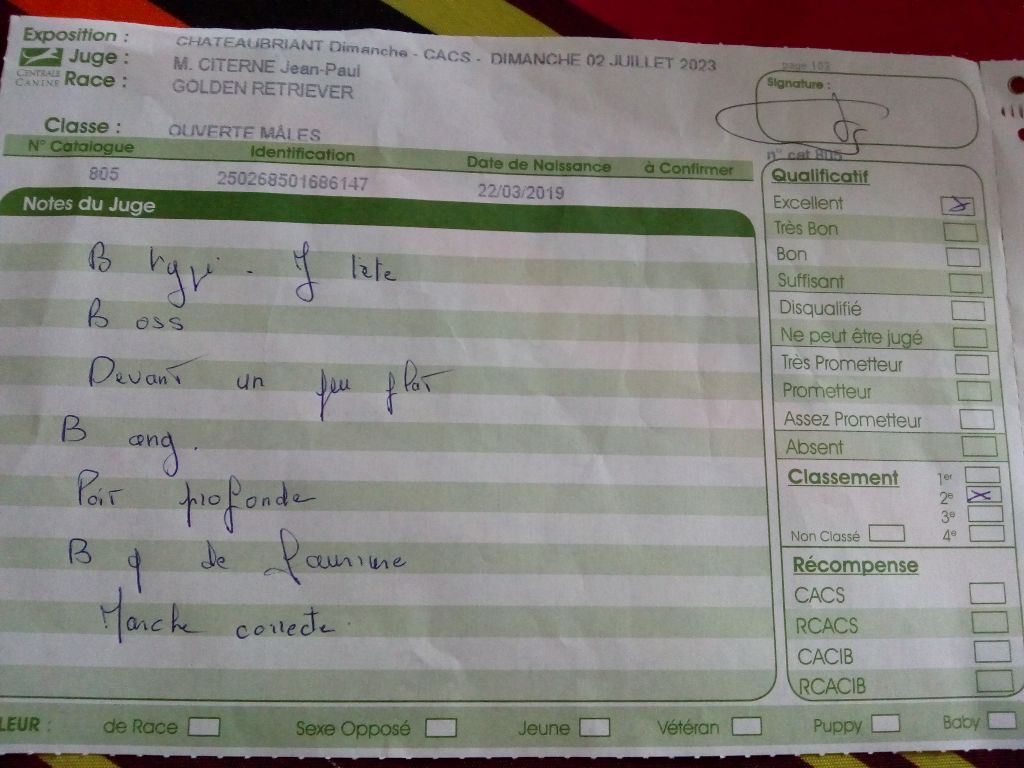 Exposition : CHATEAUBRIANT Dimanche - CACS - DIMANCHE 02 JUILLET 2023
Juge : M. CITERNE Jean-Paul
CENTRALE CANINE
Race : GOLDEN RETRIEVER
page 103
Signature :
Classe : OUVERTE MÂLES
N° Catalogue Identification Date de Naissance à Confirmer
n° cat 805
805 250268501686147 22/03/2019
Notes du Juge
B type. J tête
B oss
Devant un peu plat
B ang.
Poit profonde
B q de fourrure
Marche correcte
Qualificatif
Excellent
Très Bon
Bon
Suffisant
Disqualifié
Ne peut être jugé
Très Prometteur
Prometteur
Assez Prometteur
Absent
Classement
1er
2e
3e
Non Classé 4e
Récompense
CACS
RCACS
CACIB
RCACIB
LEUR : de Race Sexe Opposé Jeune Vétéran Puppy Baby